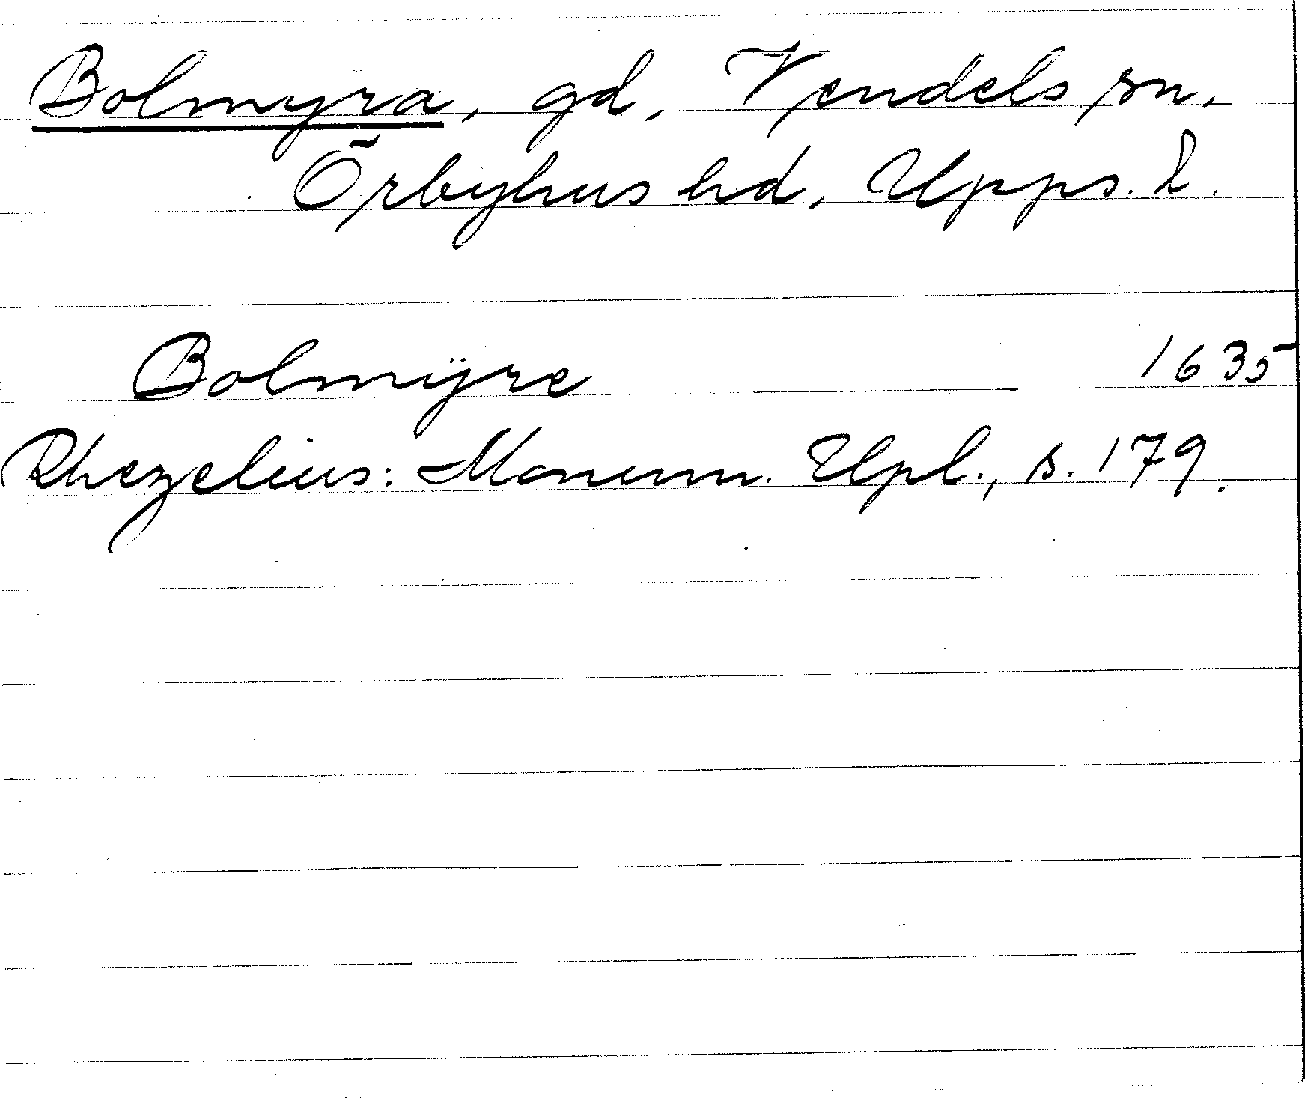 Bolmyra, gd, Vendels sn,
Örbyhus hd, Upps. l.
Bolmÿre 1635
Rhezelius: Monum. Upl., s. 179.